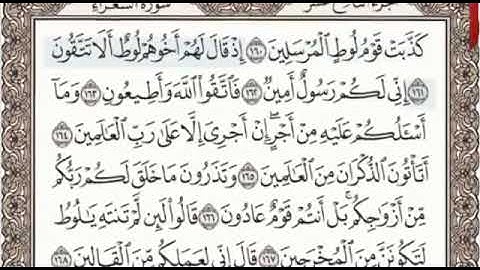 سورة الشعراء
كَذَّبَتْ قَوْمُ لُوطٍ ٱلْمُرْسَلِينَ ١٦٠ إِذْ قَالَ لَهُمْ أَخُوهُمْ لُوطٌ أَلَا تَتَّقُونَ
١٦١ إِنِّى لَكُمْ رَسُولٌ أَمِينٌ ١٦٢ فَٱتَّقُوا۟ ٱللَّهَ وَأَطِيعُونِ ١٦٣ وَمَآ
أَسْـَٔلُكُمْ عَلَيْهِ مِنْ أَجْرٍ ۖ إِنْ أَجْرِىَ إِلَّا عَلَىٰ رَبِّ ٱلْعَـٰلَمِينَ ١٦٤
أَتَأْتُونَ ٱلذُّكْرَانَ مِنَ ٱلْعَـٰلَمِينَ ١٦٥ وَتَذَرُونَ مَا خَلَقَ لَكُمْ رَبُّكُم
مِّنْ أَزْوَٰجِكُم ۚ بَلْ أَنتُمْ قَوْمٌ عَادُونَ ١٦٦ قَالُوا۟ لَئِن لَّمْ تَنتَهِ يَـٰلُوطُ
لَتَكُونَنَّ مِنَ ٱلْمُخْرَجِينَ ١٦٧ قَالَ إِنِّى لِعَمَلِكُم مِّنَ ٱلْقَالِينَ ١٦٨